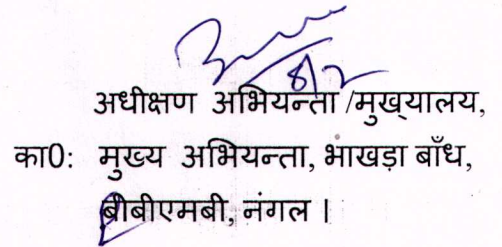 8/2
अधीक्षण अभियन्ता /मुख्यालय,
का0: मुख्य अभियन्ता, भाखड़ा बाँध,
बीबीएमबी, नंगल ।